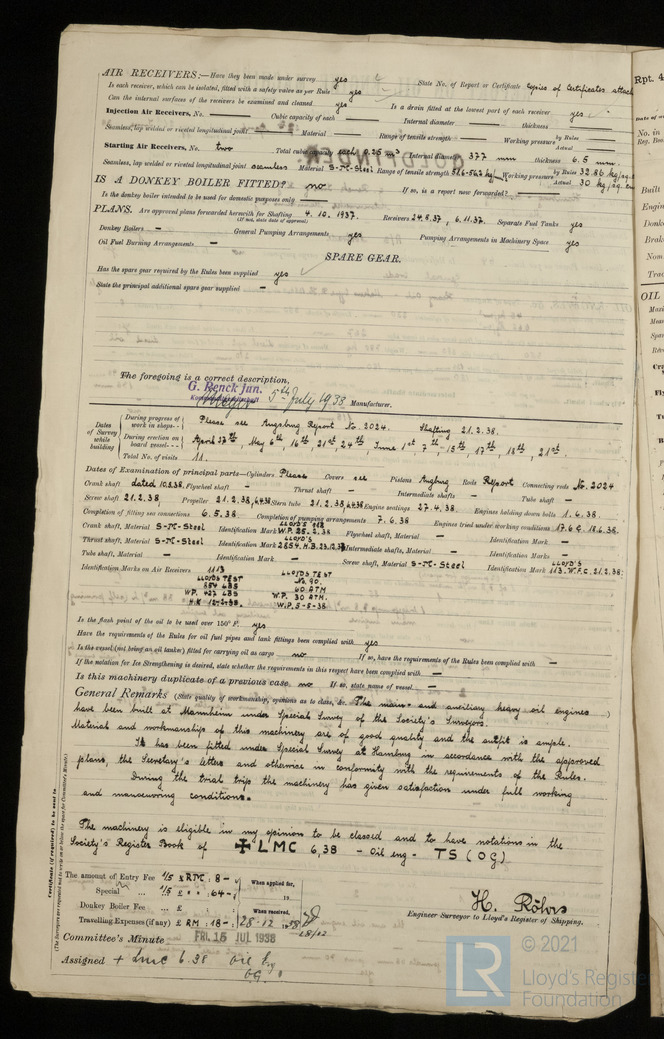 AIR RECEIVERS:—Have they been made under survey yes State No. of Report or Certificate Copies of Certificates attach
Is each receiver, which can be isolated, fitted with a safety valve as per Rule yes
Can the internal surfaces of the receivers be examined and cleaned yes Is a drain fitted at the lowest part of each receiver yes
Injection Air Receivers, No. — Cubic capacity of each — Internal diameter — thickness —
Seamless, lap welded or riveted longitudinal joint — Material — Range of tensile strength — Working pressure by Rules — Actual —
Starting Air Receivers, No. two Total cubic capacity each 0.25 m3 Internal diameter 377 mm thickness 6.5 mm.
Seamless, lap welded or riveted longitudinal joint seamless Material S-M-Steel Range of tensile strength Working pressure by Rules 32.86 kg/sq. Actual 30 kg/sq.cm
IS A DONKEY BOILER FITTED? no If so, is a report now forwarded? —
Is the donkey boiler intended to be used for domestic purposes only —
PLANS. Are approved plans forwarded herewith for Shafting 4.10.1937. Receivers 24.8.37, 6.11.37. Separate Fuel Tanks yes
(If not, state date of approval)
Donkey Boilers — General Pumping Arrangements yes Pumping Arrangements in Machinery Space yes
Oil Fuel Burning Arrangements —
SPARE GEAR.
Has the spare gear required by the Rules been supplied yes
State the principal additional spare gear supplied —
The foregoing is a correct description,
G. Renck jun.
5th July 1938 Manufacturer.
Dates of Survey while building
During progress of work in shops Please see Augsburg Report No. 2024. Shafting 21.2.38.
During erection on board vessel April 27th, May 6th, 16th, 21st, 24th, June 1st, 7th, 15th, 17th, 18th, 21st.
Total No. of visits 11.
Dates of Examination of principal parts—Cylinders Please Covers see Pistons Augsburg Rods Report Connecting rods No. 2024
Crank shaft dated 10.3.38, Flywheel shaft — Thrust shaft — Intermediate shafts — Tube shaft —
Screw shaft 21.2.38, Propeller 21.2.38, 6.4.38 Stern tube 21.2.38, 6.4.38 Engine seatings 27.4.38. Engines holding down bolts 1.6.38.
Completion of fitting sea connections 6.5.38. Completion of pumping arrangements 7.6.38 Engines tried under working conditions 17.6 & 18.6.38.
Crank shaft, Material S-M-Steel Identification Mark LLOYD'S W.P. 25.2.38 Flywheel shaft, Material — Identification Mark —
Thrust shaft, Material S-M-Steel Identification Mark LLOYD'S 2654 H.B. 23.12.37 Intermediate shafts, Material — Identification Marks —
Tube shaft, Material — Identification Mark — Screw shaft, Material S-M-Steel Identification Mark LLOYD'S 113 W.F.C. 21.2.38.
Identification Marks on Air Receivers 1113 LLOYDS TEST
LLOYDS TEST No. 90.
854 LBS 60 ATM
W.P. 427 LBS W.P. 30 ATM.
H.K 12-2-38. W.P. 5-5-38
Is the flash point of the oil to be used over 150° F. yes
Have the requirements of the Rules for oil fuel pipes and tank fittings been complied with yes
Is the vessel (not being an oil tanker) fitted for carrying oil as cargo no If so, have the requirements of the Rules been complied with —
If the notation for Ice Strengthening is desired, state whether the requirements in this respect have been complied with —
Is this machinery duplicate of a previous case no If so, state name of vessel —
General Remarks (State quality of workmanship, opinions as to class, &c. The main- and auxiliary heavy oil engines)
have been built at Mannheim under Special Survey of the Society's Surveyors.
Material and workmanship of this machinery are of good quality and the outfit is ample.
It has been fitted under Special Survey at Hamburg in accordance with the approved
plans, the Secretary's letters and otherwise in conformity with the requirements of the Rules.
During the trial trip the machinery has given satisfaction under full working
and manoeuvring conditions.
The machinery is eligible in my opinion to be classed and to have notations in the
Society's Register Book of ✠ LMC 6,38 — Oil eng — TS (OG)
Certificate (if required) to be sent to
(The Surveyors are requested not to write on or below the space for Committee's Minute.)
The amount of Entry Fee 1/5 RM : 8 —
Special 1/5 £ : 64 —
When applied for, 19
Donkey Boiler Fee £
Travelling Expenses (if any) £ RM : 18 —
When received, 28.12.1938 28/12
H. Röhrs
Engineer Surveyor to Lloyd's Register of Shipping.
Committee's Minute FRI. 15 JUL 1938
Assigned + LMC 6.38 Oil Eng
OG
Rpt. 4
Date of
No. in
Reg. Book
Built
Engin
Brake
Nom
Trac
OIL
© 2021
LR
Lloyd's Register
Foundation